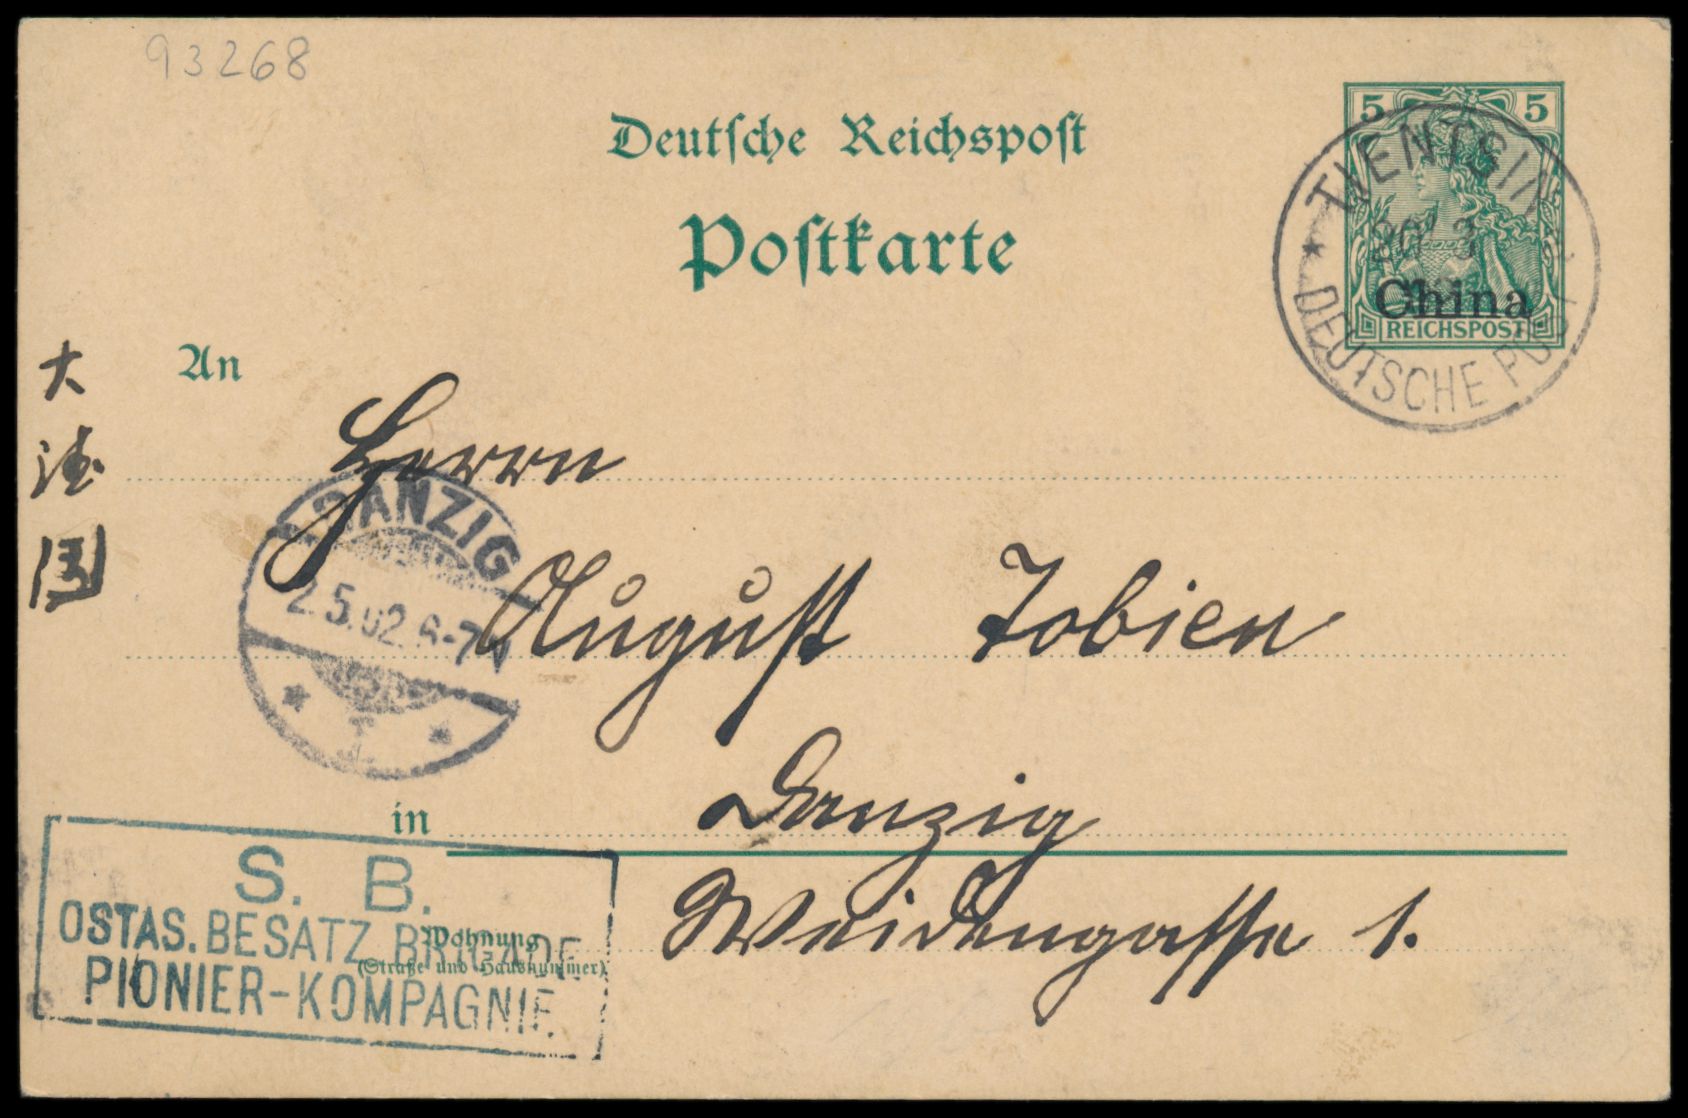 93268
Deutsche Reichspost
Postkarte
5 5
China
REICHSPOST
TIENTSIN
20 3
DEUTSCHE POST
大
德
国
An
Herrn
DANZIG
2.5.02.6-7N
August Tobien
in Danzig
Weidengasse 1.
Wohnung
(Straße und Hausnummer)
S. B.
OSTAS. BESATZ. BRIGADE
PIONIER-KOMPAGNIE.